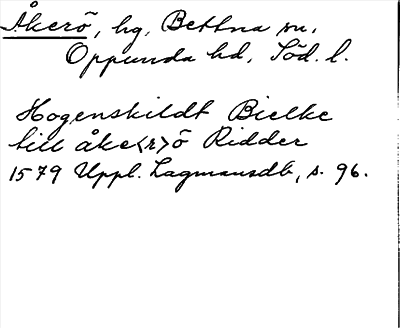 Åkerö, hg, Bettna sn,
Oppunda hd, Söd. l.
Hogenskildt Bielke
till åke<r>ö Ridder
1579 Uppl. Lagmansdb, s. 96.